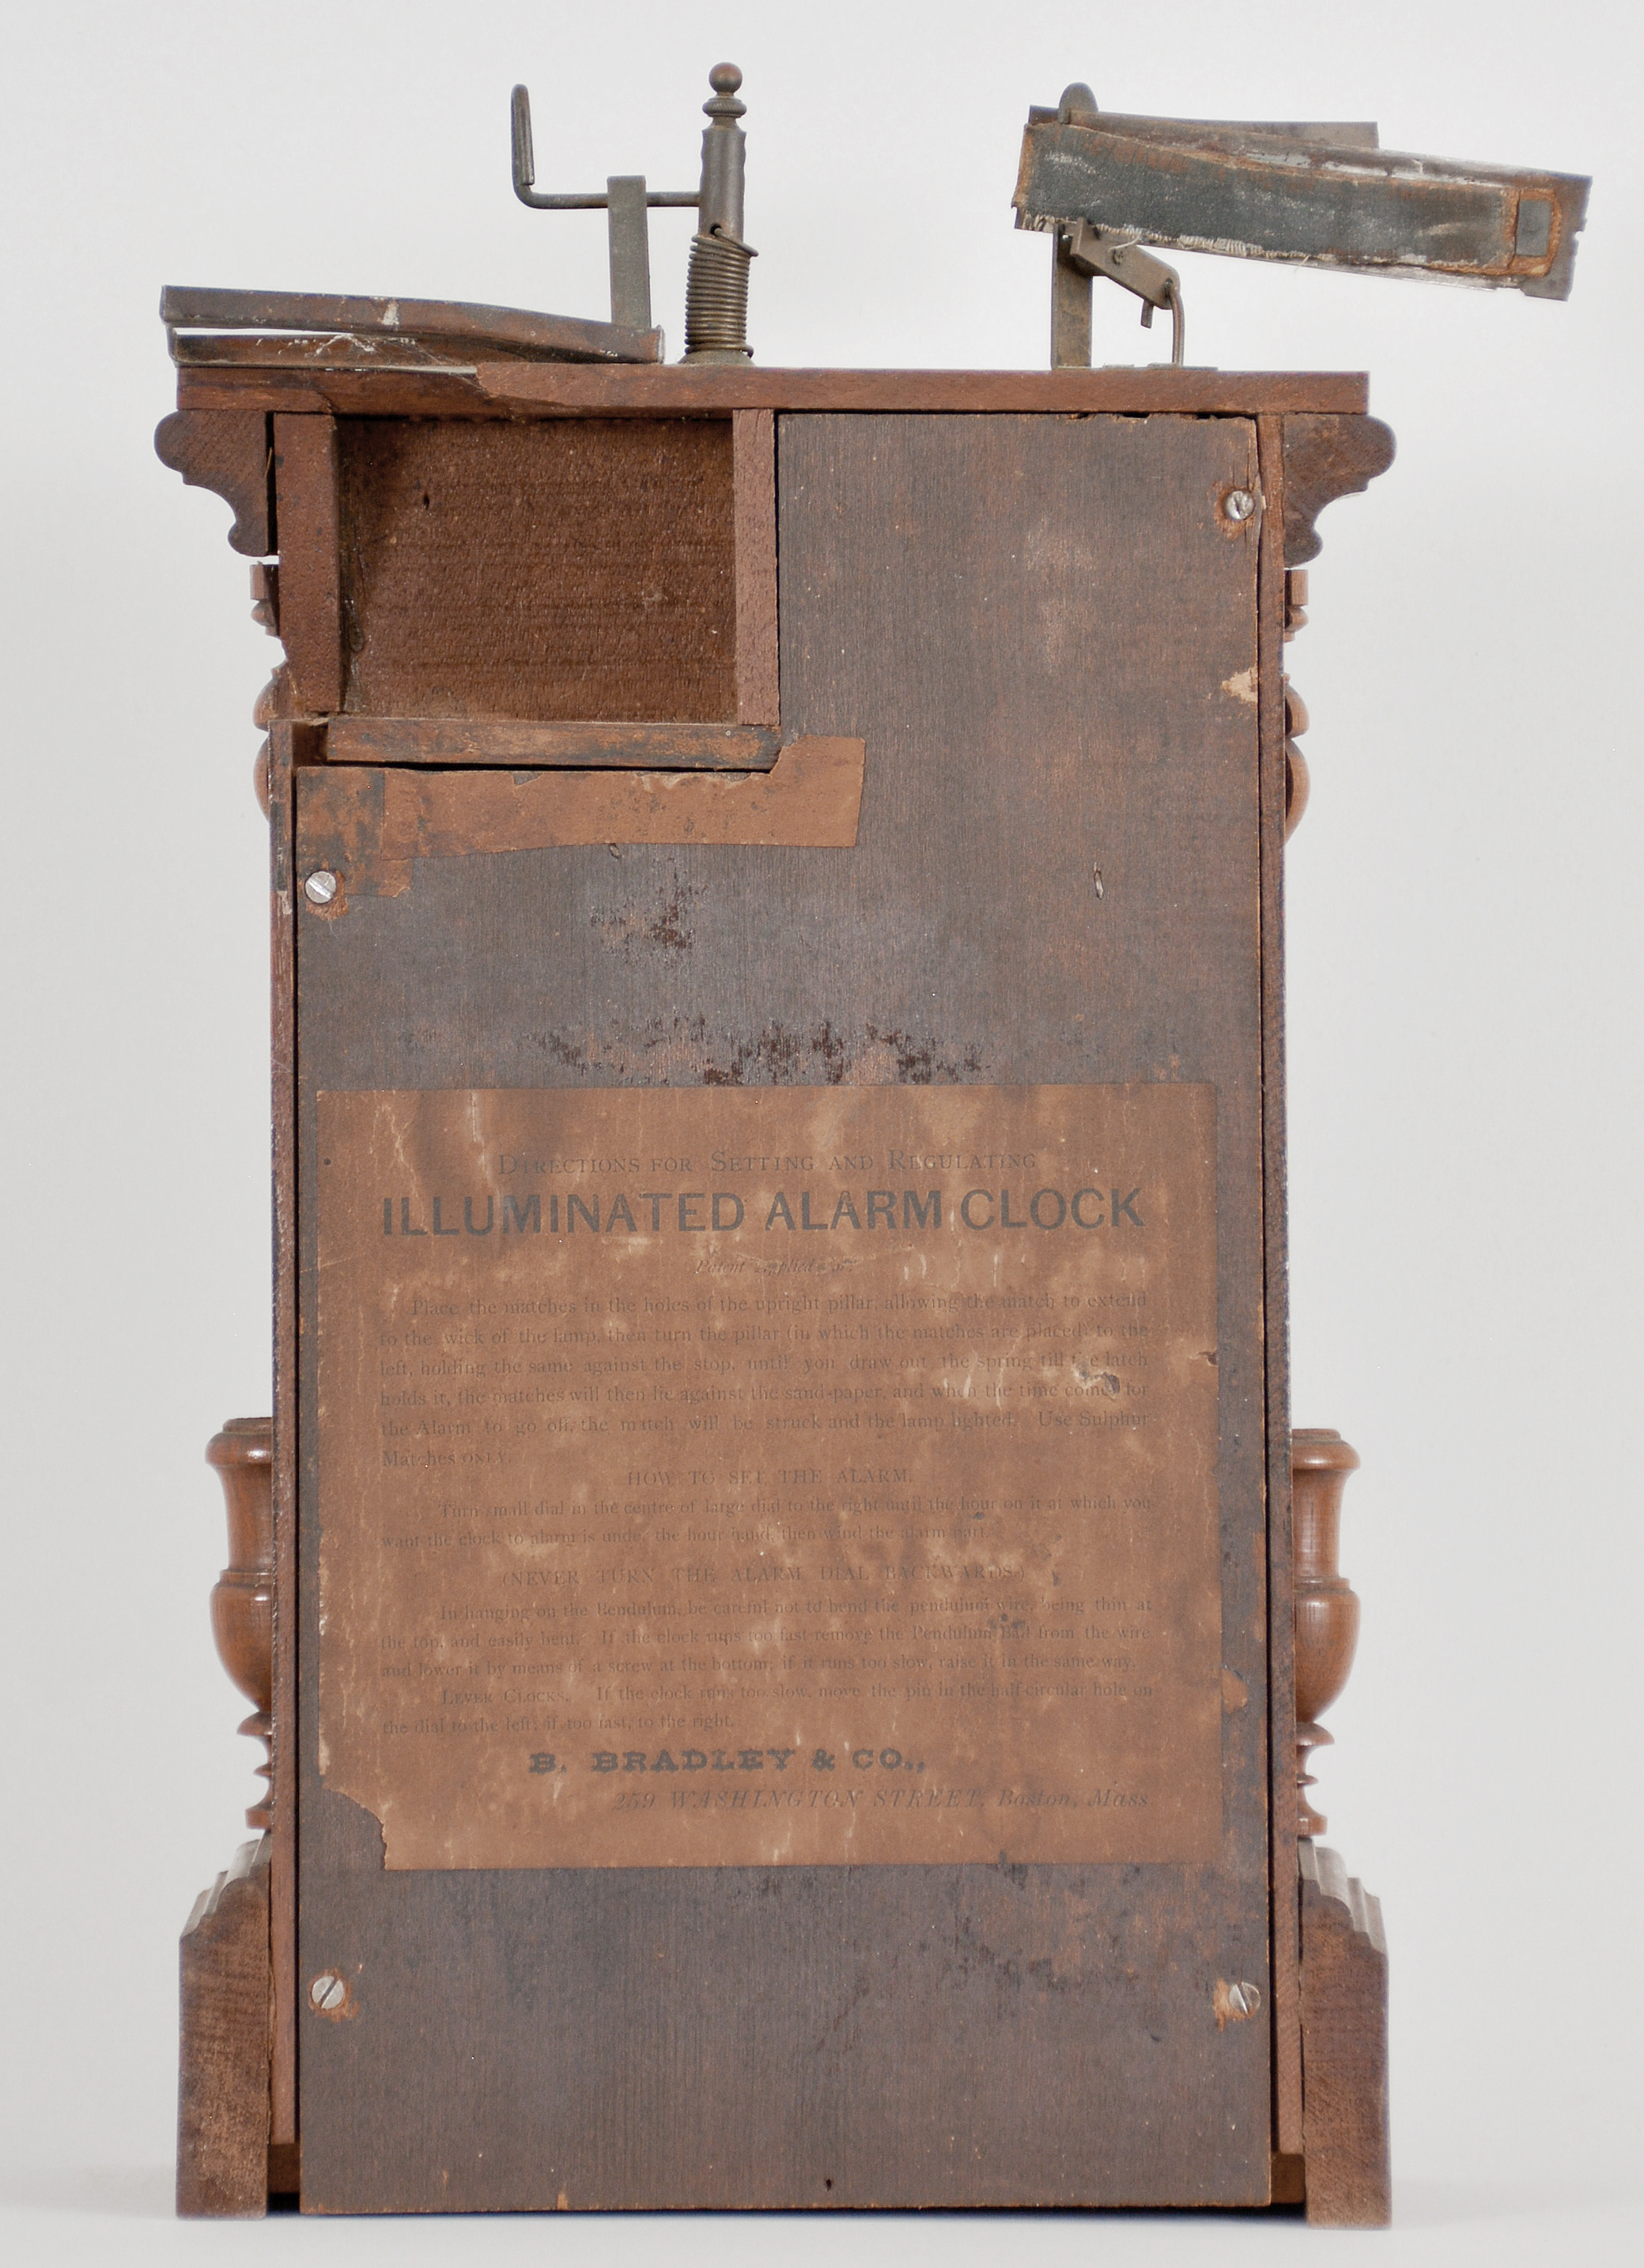 DIRECTIONS FOR SETTING AND REGULATING
ILLUMINATED ALARM CLOCK
Patent applied for.
Place the matches in the holes of the upright pillar, allowing the match to extend
to the wick of the lamp, then turn the pillar (in which the matches are placed) to the
left, holding the same against the stop, until you draw out the spring till the latch
holds it, the matches will then lie against the sand-paper, and when the time comes for
the Alarm to go off, the match will be struck and the lamp lighted. Use Sulphur
Matches ONLY.
HOW TO SET THE ALARM.
Turn small dial in the centre of large dial to the right until the hour on it at which you
want the clock to alarm is under the hour hand, then wind the alarm part.
(NEVER TURN THE ALARM DIAL BACKWARDS.)
In hanging on the Pendulum, be careful not to bend the pendulum wire, being thin at
the top, and easily bent. If the clock runs too fast remove the Pendulum Ball from the wire
and lower it by means of a screw at the bottom; if it runs too slow, raise it in the same way.
LEVER CLOCKS. If the clock runs too slow, move the pin in the half-circular hole on
the dial to the left; if too fast, to the right.
B. BRADLEY & CO.,
259 WASHINGTON STREET, Boston, Mass